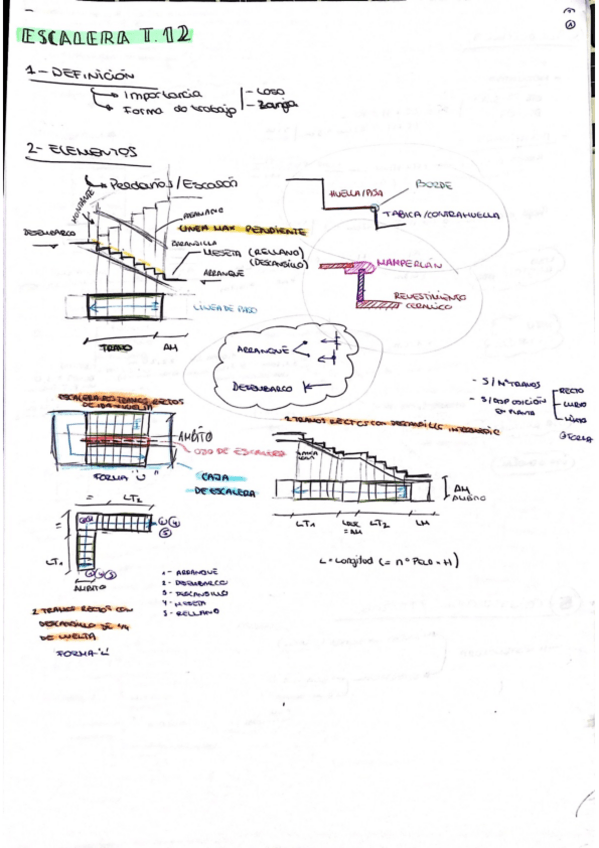 ESCALERA T.12
1- DEFINICIÓN
Importancia
Forma de trabajo
- Losa
- Zanja
2- ELEMENTOS
Peldaños/Escalón
BORDE
HUELLA/PISA
TABICA/CONTRAHUELLA
LINEA MAX PENDIENTE
BARANDILLA
DESEMBARCO
MESETA (RELLANO)
(DESCANSILLO)
ARRANQUE
MAMPERLÁN
REVESTIMIENTO
CERÁMICO
LINEA DE PASO
TRAMO
AM
ARRANQUE
DESEMBARCO
- S/ Nº TRAMOS
- S/ DISPOSICIÓN
EN PLANTA
RECTO
CURVO
MIXTO
ESCALERA DOS TRAMOS RECTOS
DE IDA Y VUELTA
2 TRAMOS RECTOS CON DESCANSILLO INTERMEDIO
ÁMBITO
OJO DE ESCALERA
FORMA "U"
CAJA
DE ESCALERA
AM
ÁMBITO
= LT2
LT1
ÁMBITO
LT1
= AM
LT2
LM
L = Longitud (= nº PELD · H)
1- ARRANQUE
2- DESEMBARCO
3- DESCANSILLO
4- MESETA
5- RELLANO
2 TRAMOS RECTOS CON
DESCANSILLO DE 1/4
DE VUELTA
FORMA "L"